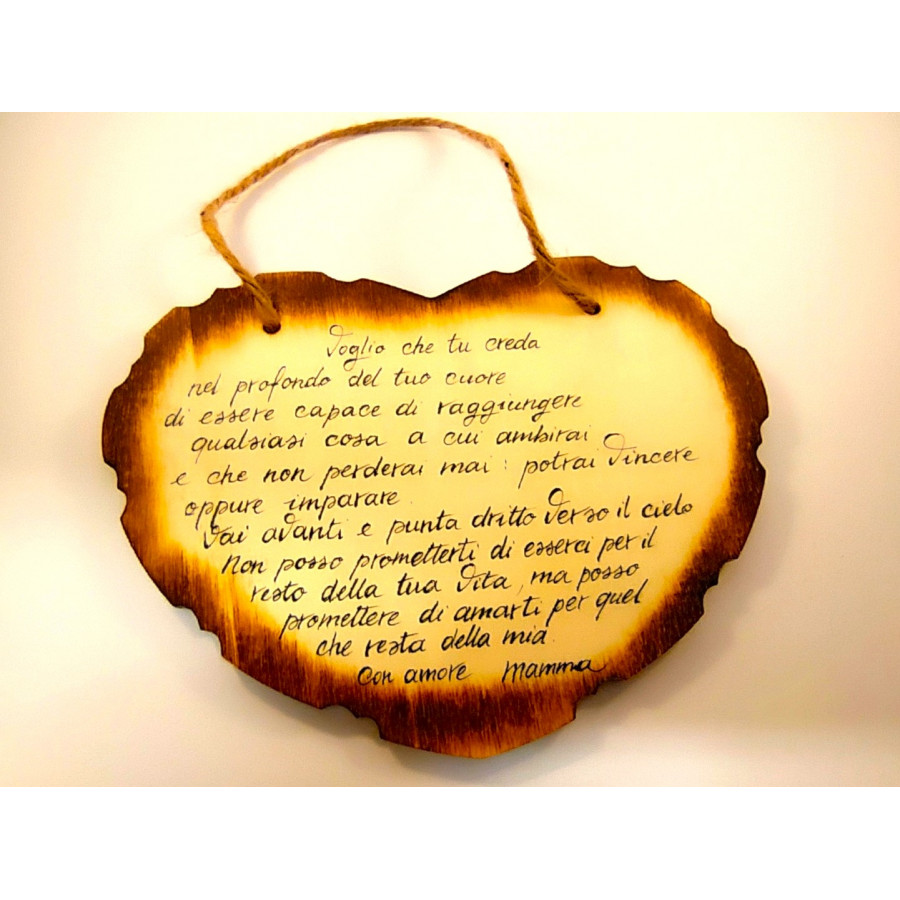 Voglio che tu creda
nel profondo del tuo cuore
di essere capace di raggiungere
qualsiasi cosa a cui ambirai
e che non perderai mai: potrai vincere
oppure imparare.
Vai avanti e punta dritto verso il cielo
Non posso prometterti di esserci per il
resto della tua vita, ma posso
promettere di amarti per quel
che resta della mia.
Con amore Mamma